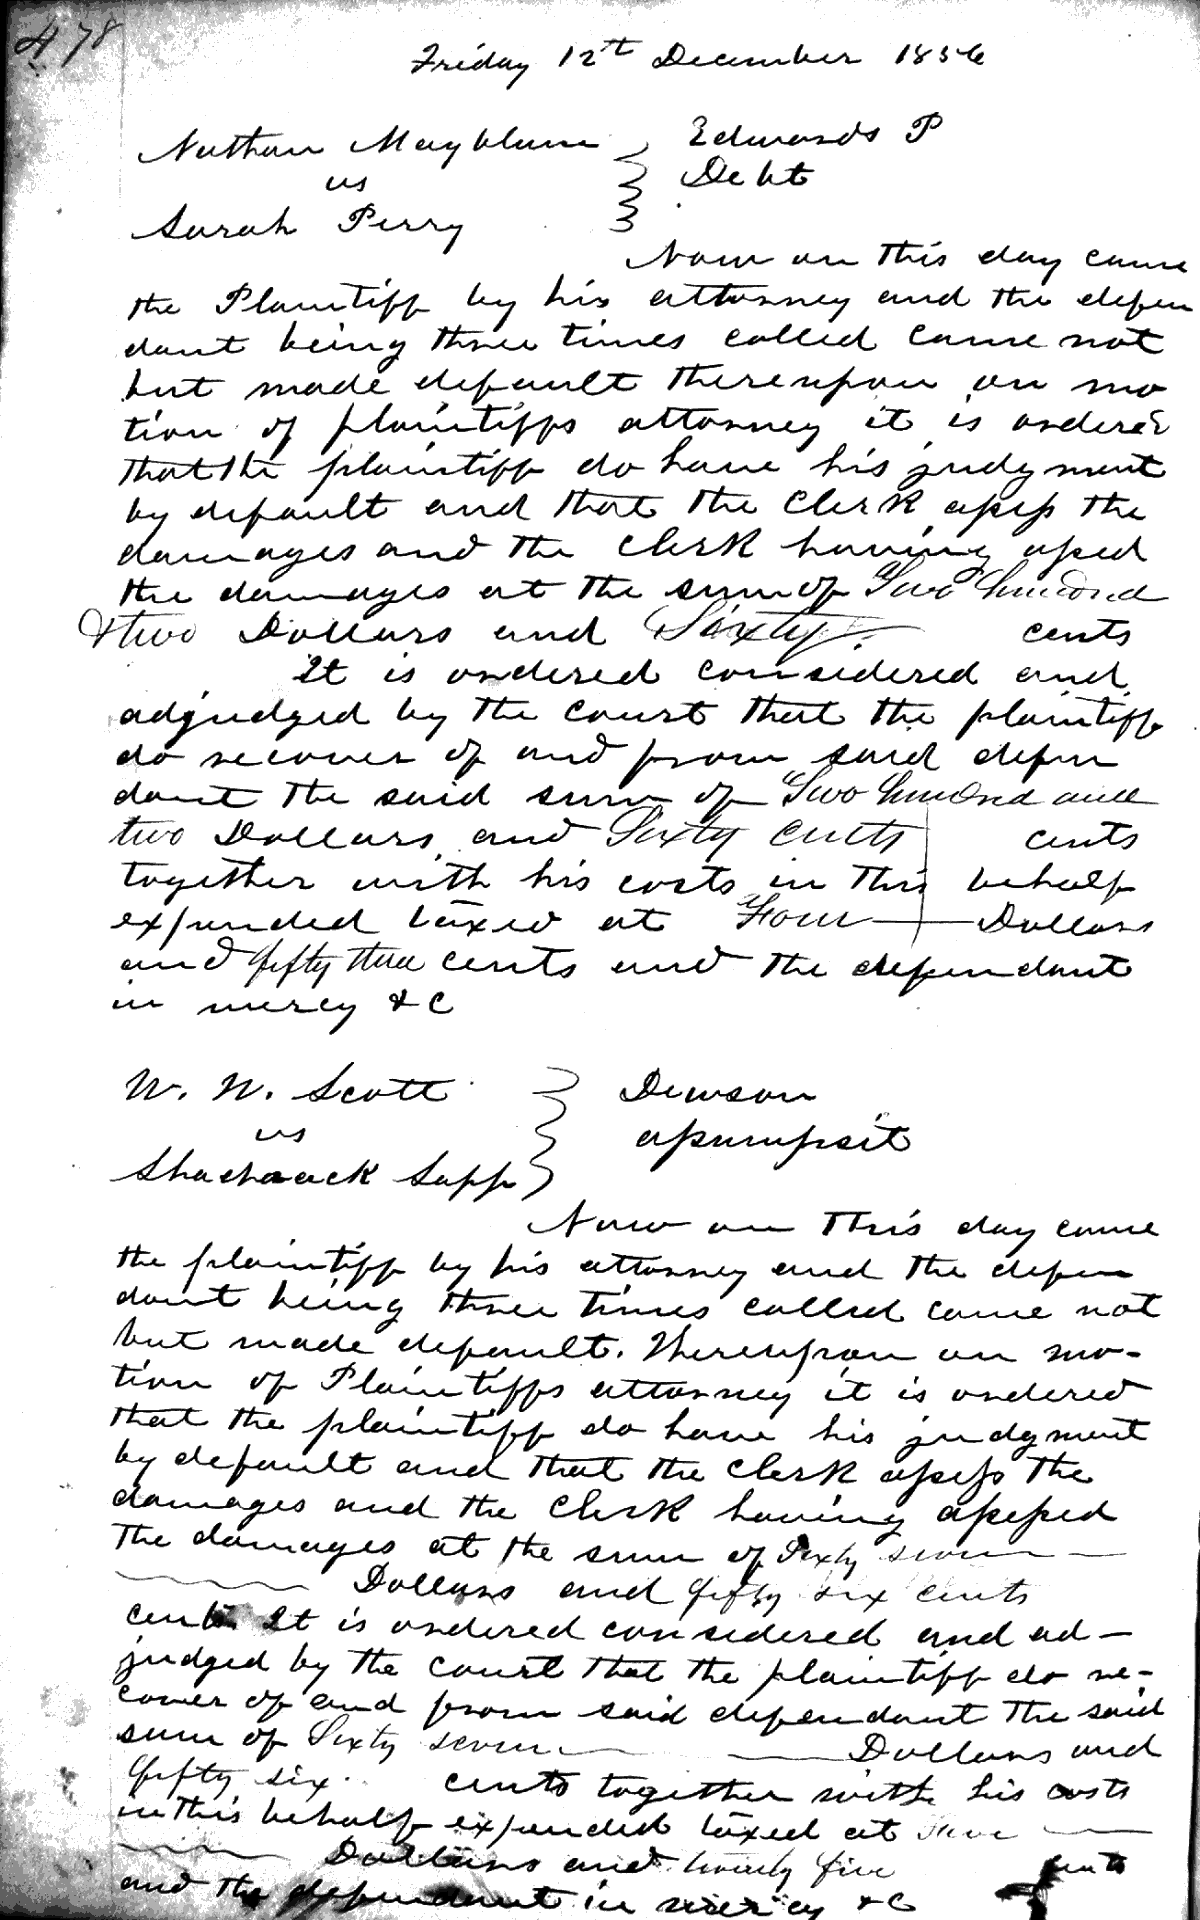 478
Friday 12th December 1856
Nathan Mayblum Edwards P
vs Debt
Sarah Perry
Now on this day came
the Plaintiff by his attorney and the defen
dant being three times called came not
but made default thereupon on mo
tion of plaintiffs attorney it is ordered
that the plaintiff do have his judgment
by default and that the clerk assess the
damages and the clerk having assed
the damages at the sum of Two hundred
& two Dollars and Sixty cents
It is ordered considered and
adjudged by the court that the plaintiff
do recover of and from said defen
dant the said sum of Two hundred and
two Dollars and Sixty cents cents
together with his costs in this behalf
expended taxed at Four Dollars
and fifty three cents and the defendant
in mercy & C
W. W. Scott Dewson
vs assumpsit
Shachaack Sapp
Now on this day came
the plaintiff by his attorney and the defen
dant being three times called came not
but made default. Thereupon on mo-
tion of Plaintiffs attorney it is ordered
that the plaintiff do have his judgment
by default and that the clerk assess the
damages and the clerk having assessed
the damages at the sum of Sixty seven
Dollars and fifty six cents
cents It is ordered considered and ad-
judged by the court that the plaintiff do re-
cover of and from said defendant the said
sum of Sixty seven Dollars and
fifty six cents together with his costs
in this behalf expended taxed at
Dollars and twenty five cents
and the defendant in mercy & C